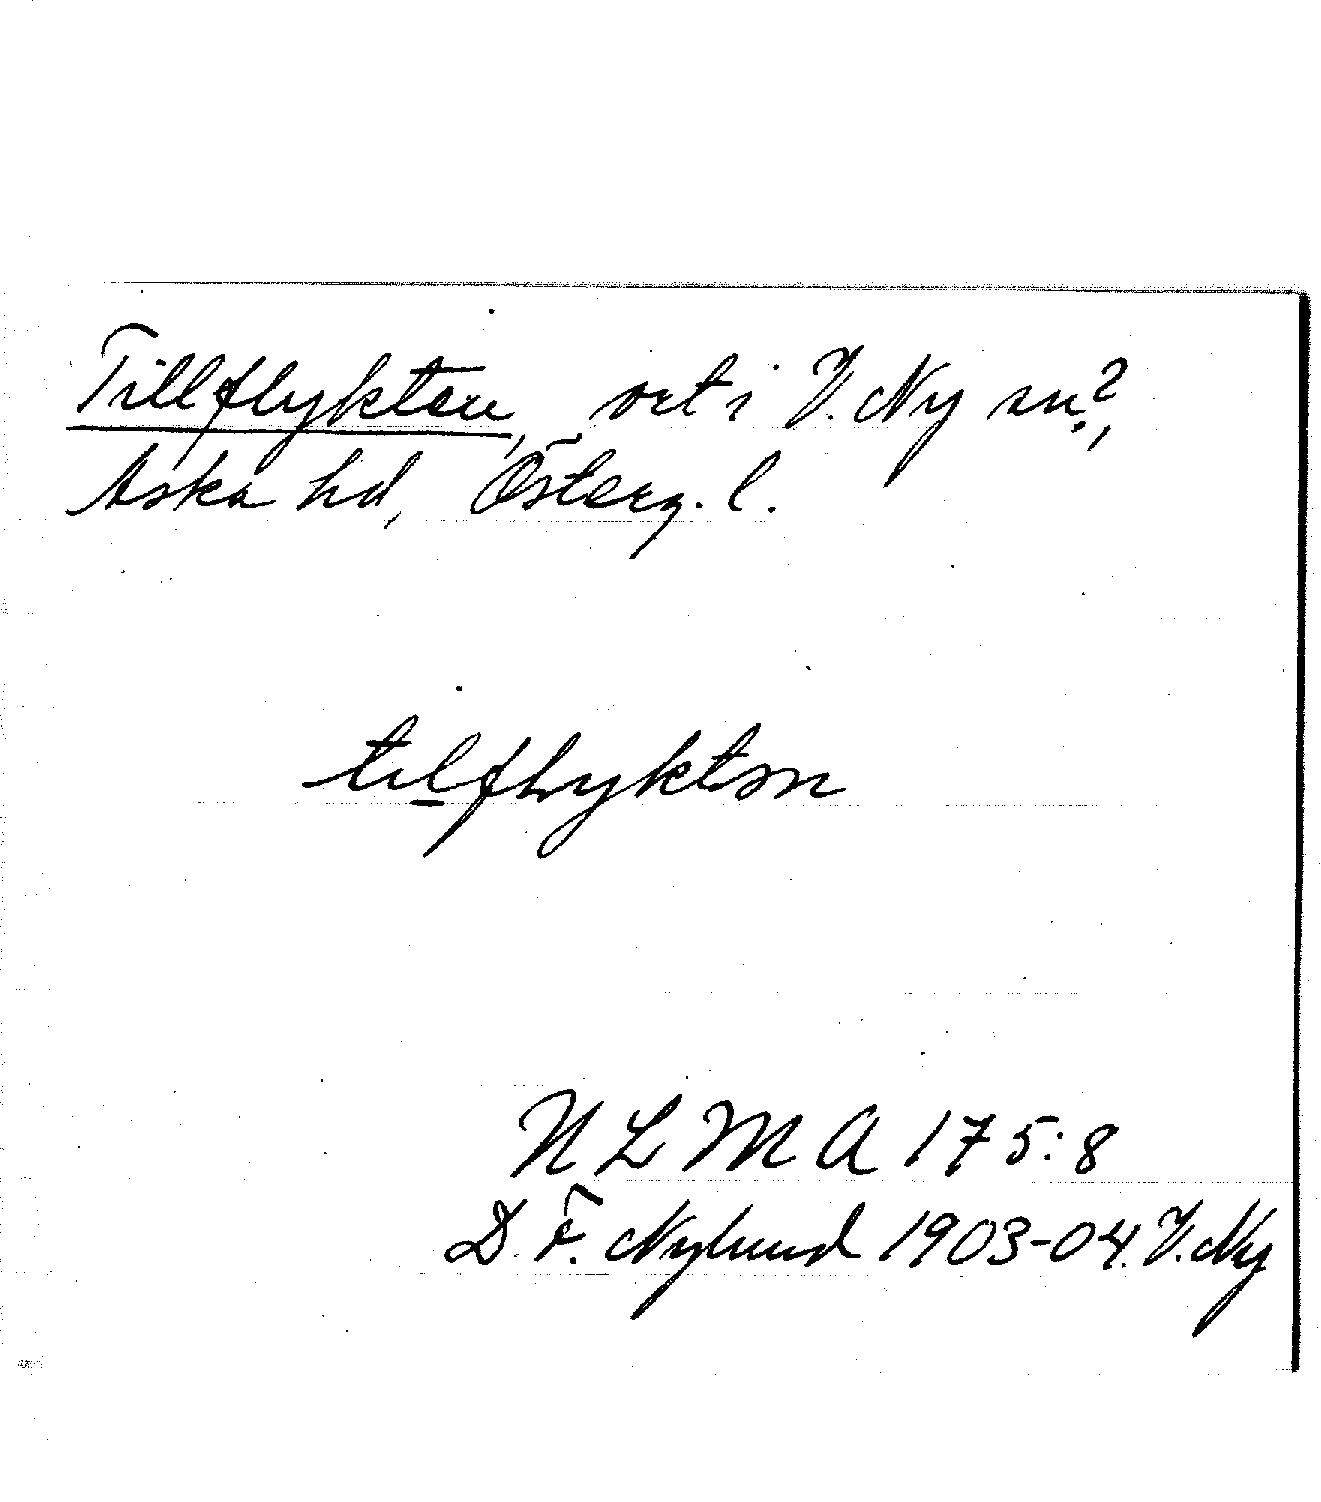 Tillflykten, ort i V. Ny sn?,
Aska hd, Österg. l.
tilflyktən
N L M A 175:8
D. F. Nylund 1903-04. V. Ny